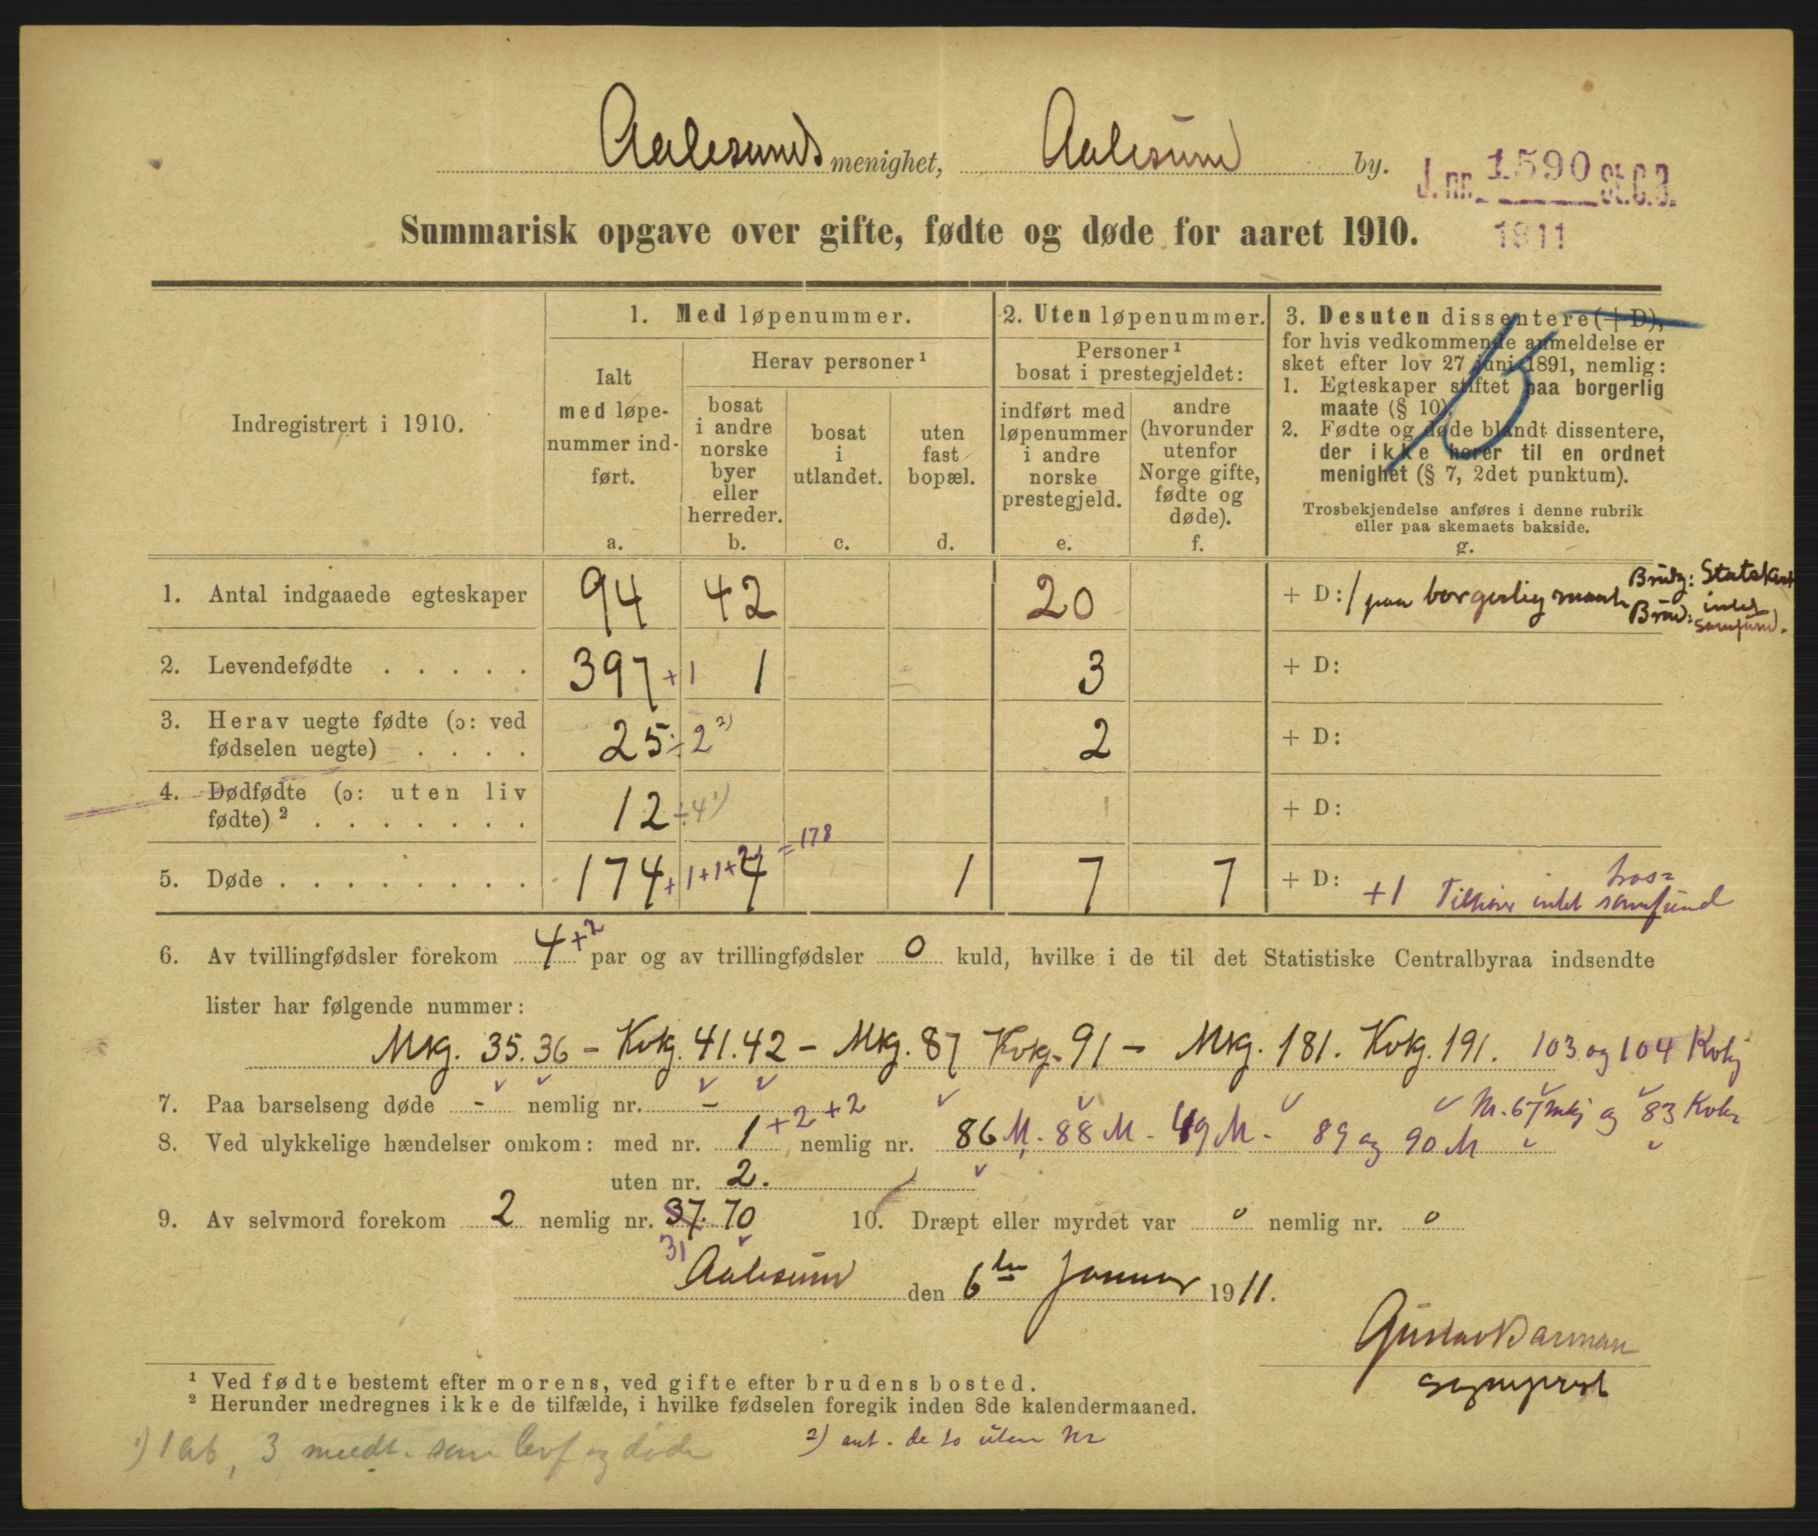 Aalesunds menighet, Aalesund by.
J. nr. 1590 St.C.B.
1911
Summarisk opgave over gifte, fødte og døde for aaret 1910.
Indregistrert i 1910.
1. Med løpenummer.
Ialt
med løpe-
nummer ind-
ført.
a.
Herav personer ¹
bosat
i andre
norske
byer
eller
herreder.
b.
bosat
i
utlandet.
c.
uten
fast
bopæl.
d.
2. Uten løpenummer.
Personer ¹
bosat i prestegjeldet:
indført med
løpenummer
i andre
norske
prestegjeld.
e.
andre
(hvorunder
utenfor
Norge gifte,
fødte og
døde).
f.
3. Desuten dissentere (+ D),
for hvis vedkommende anmeldelse er
sket efter lov 27 juni 1891, nemlig:
1. Egteskaper stiftet paa borgerlig
maate (§ 10).
2. Fødte og døde blandt dissentere,
der ikke hører til en ordnet
menighet (§ 7, 2det punktum).
Trosbekjendelse anføres i denne rubrik
eller paa skemaets bakside.
g.
1. Antal indgaaede egteskaper 94 42 20 + D: 1 paa borgerlig maate Brudg: Statskirk
Brud: intet
samfund.
2. Levendefødte . . . . . 397 +1 1 3 + D:
3. Herav uegte fødte (ɔ: ved
fødselen uegte) . . . . 25 ÷ 2 ²) 2 + D:
4. Dødfødte (ɔ: uten liv
fødte) ² . . . . . . . 12 ÷ 4 ¹) 1 + D:
5. Døde . . . . . . . . 174 +1+1+2 4 = 178 1 7 7 + D: +1 Tilhører intet tros=
samfund
6. Av tvillingfødsler forekom 4 +2 par og av trillingfødsler 0 kuld, hvilke i de til det Statistiske Centralbyraa indsendte
lister har følgende nummer:
Mkg. 35. 36 – Kvkg. 41. 42 – Mkg. 87 Kvkg. 91 – Mkg. 181. Kvkg. 191. 103 og 104 Kvkj
7. Paa barselseng døde - nemlig nr. – Nr. 67 mkj og 83 Kvk
8. Ved ulykkelige hændelser omkom: med nr. 1 +2 +2 nemlig nr. 86 M. 88 M - 49 M - 89 og 90 M
uten nr. 2.
9. Av selvmord forekom 2 nemlig nr. 37. 70 10. Dræpt eller myrdet var 0 nemlig nr. 0
31
Aalesund den 6te Januar 1911.
Gustav Barman
sogneprest
¹ Ved fødte bestemt efter morens, ved gifte efter brudens bosted.
² Herunder medregnes ikke de tilfælde, i hvilke fødselen foregik inden 8de kalendermaaned.
¹) 1 ab, 3 meedt. som levf og døde
²) ant. de to uten Nr